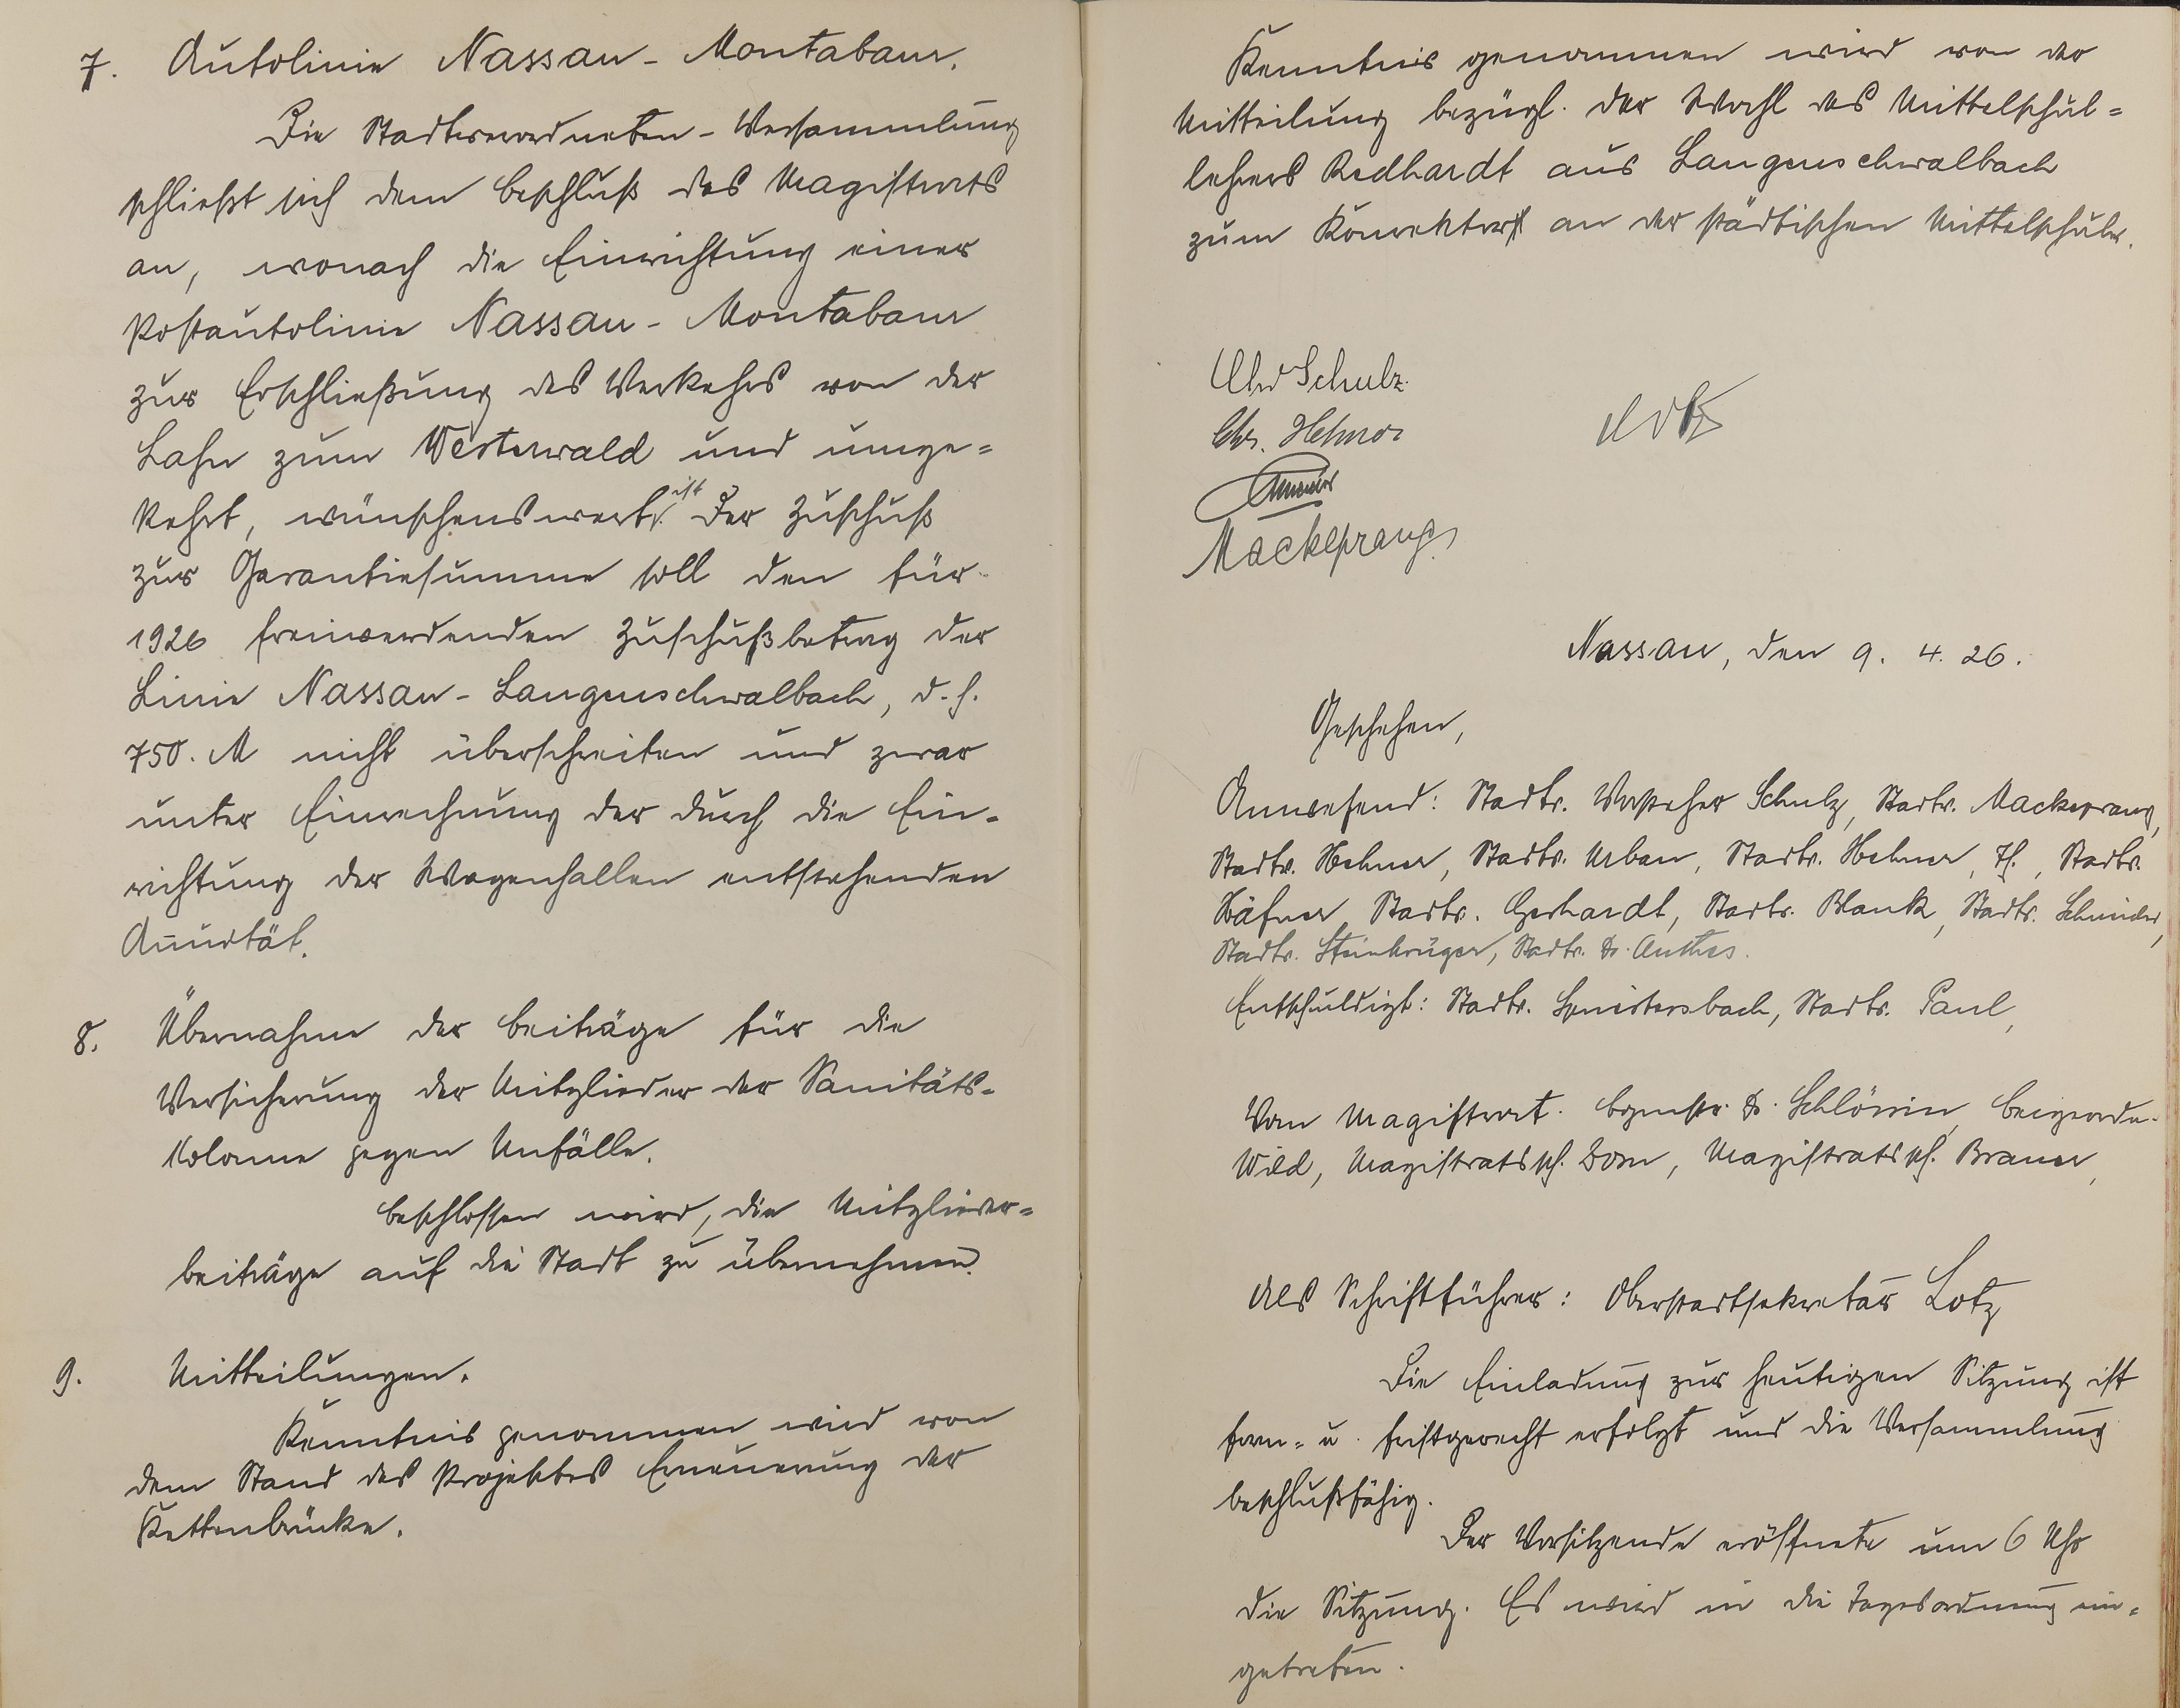 7. Autolinie Nassau - Montabaur.
Die Stadtverordneten - Versammlung
schließt sich dem Beschluß des Magistrats
an, wonach die Einrichtung einer
Postautolinie Nassau - Montabaur
zur Erschließung des Verkehrs von der
Lahn zum Westerwald und umge=
kehrt, wünschenswert ist. Der Zuschuß
zur Garantiesumme soll den für
1926 freiwerdenden Zuschußbetrag der
Linie Nassau - Langenschwalbach, d. h.
750. M nicht überschreiten und zwar
unter Einrechnung der durch die Ein=
richtung der Wagenhallen entstehenden
Annuität.
8. Übernahme der Beiträge für die
Versicherung der Mitglieder der Sanitäts=
kolonne gegen Unfälle.
Beschlossen wird, die Mitglieder=
beiträge auf die Stadt zu übernehmen.
9. Mitteilungen.
Kenntnis genommen wird von
dem Stand des Projektes Erneuerung der
Kettenbrücke.
Kenntnis genommen wird von der
Mitteilung bezügl. der Wahl des Mittelschul=
lehrers Redhardt aus Langenschwalbach
zum Konrektor an der städtischen Mittelschule.
Schulz
Chr. Hehner
Lotz
Mackeprang
Nassau, den 9. 4. 26.
Geschehen,
Anwesend: Stadtv. Vorsteher Schulz, Stadtv. Mackeprang,
Stadtv. Hehner, Stadtv. Urban, Stadtv. Hehner, Th., Stadtv.
Häfner, Stadtv. Gerhardt, Stadtv. Blank, Stadtv. Schneider,
Stadtv. Steinkrüger, Stadtv. Dr. Anthes.
Entschuldigt: Stadtv. Stadtv. Paul,
Vom Magistrat. Bgmstr. Dr. Beigeordn.
Wild, Magistratssch. Dorn, Magistratssch. Brauer,
Als Schriftführer: Oberstadtsekretär Lotz
Die Einladung zur heutigen Sitzung ist
form= u. fristgerecht erfolgt und die Versammlung
beschlußfähig.
Der Vorsitzende eröffnete um 6 Uhr
die Sitzung. Es wird in die Tagesordnung ein=
getreten.